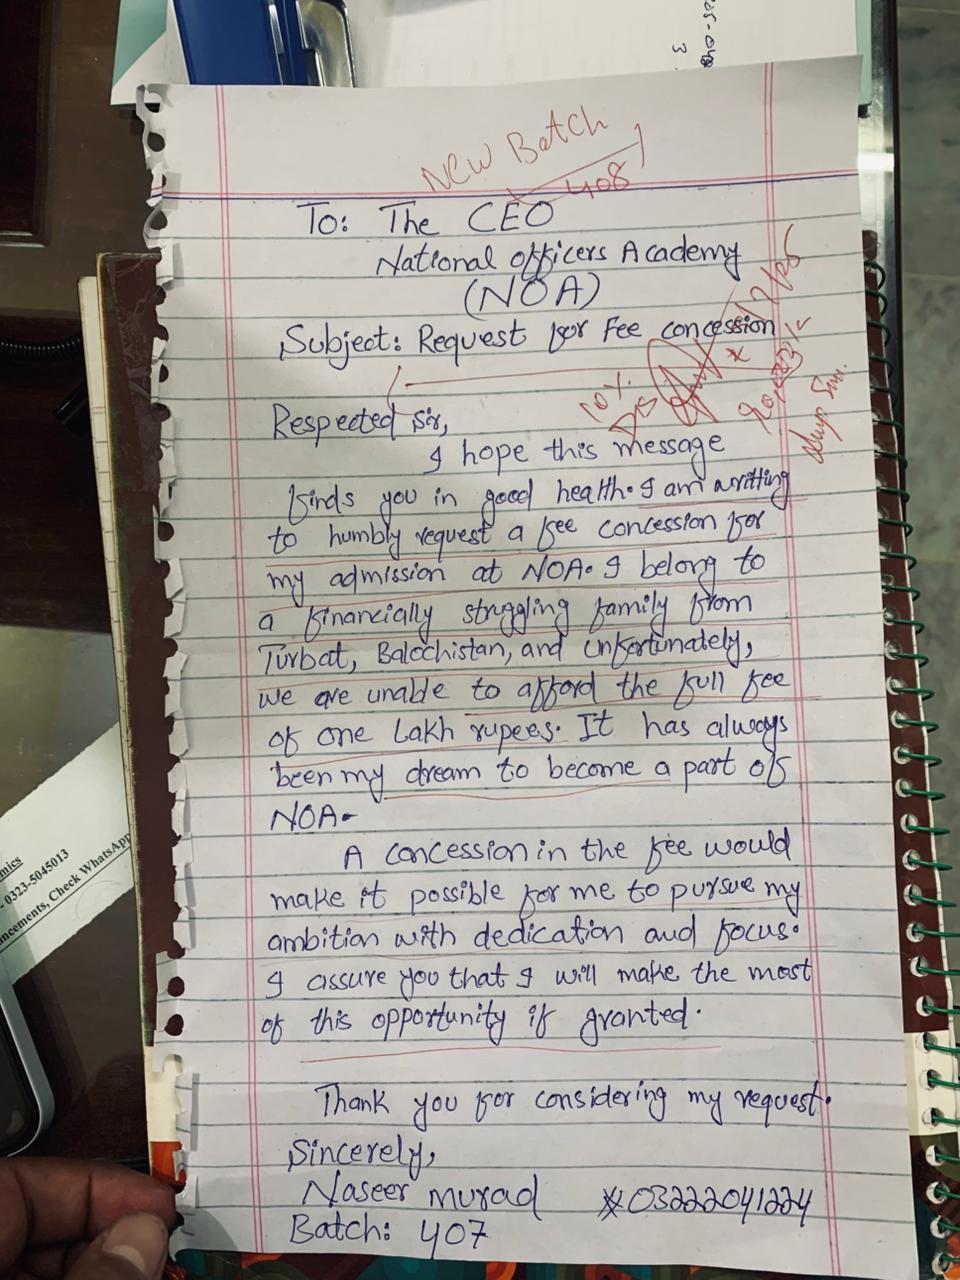 New Batch
408
To: The CEO
National Officers Academy
(NOA)
Subject: Request for Fee concession
10%
Dis
Respected Sir,
I hope this message
finds you in good health. I am writting
to humbly request a fee concession for
my admission at NOA. I belong to
a financially struggling family from
Turbat, Balochistan, and unfortunately,
we are unable to afford the full fee
of one Lakh rupees. It has always
been my dream to become a part of
NOA.
A concession in the fee would
make it possible for me to pursue my
ambition with dedication and focus.
I assure you that I will make the most
of this opportunity if granted.
Thank you for considering my request.
Sincerely,
Naseer murad
03222041224
Batch: 407
mics
0323-5045013
ncements, Check WhatsApp